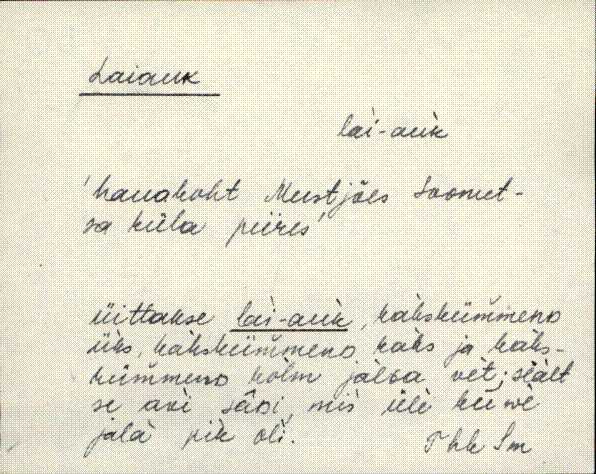 Laiauk
lài-auk
'hauakoht Mustjões Soomet-
sa küla piires'
üittakse lài-auk, kakskümmend
üks, kakskümmend kaks ja kaks-
kümmend kolm jalga vèt; siält
se avi sâdi, mis üle kü
jalà pik oli.
Thk Sm